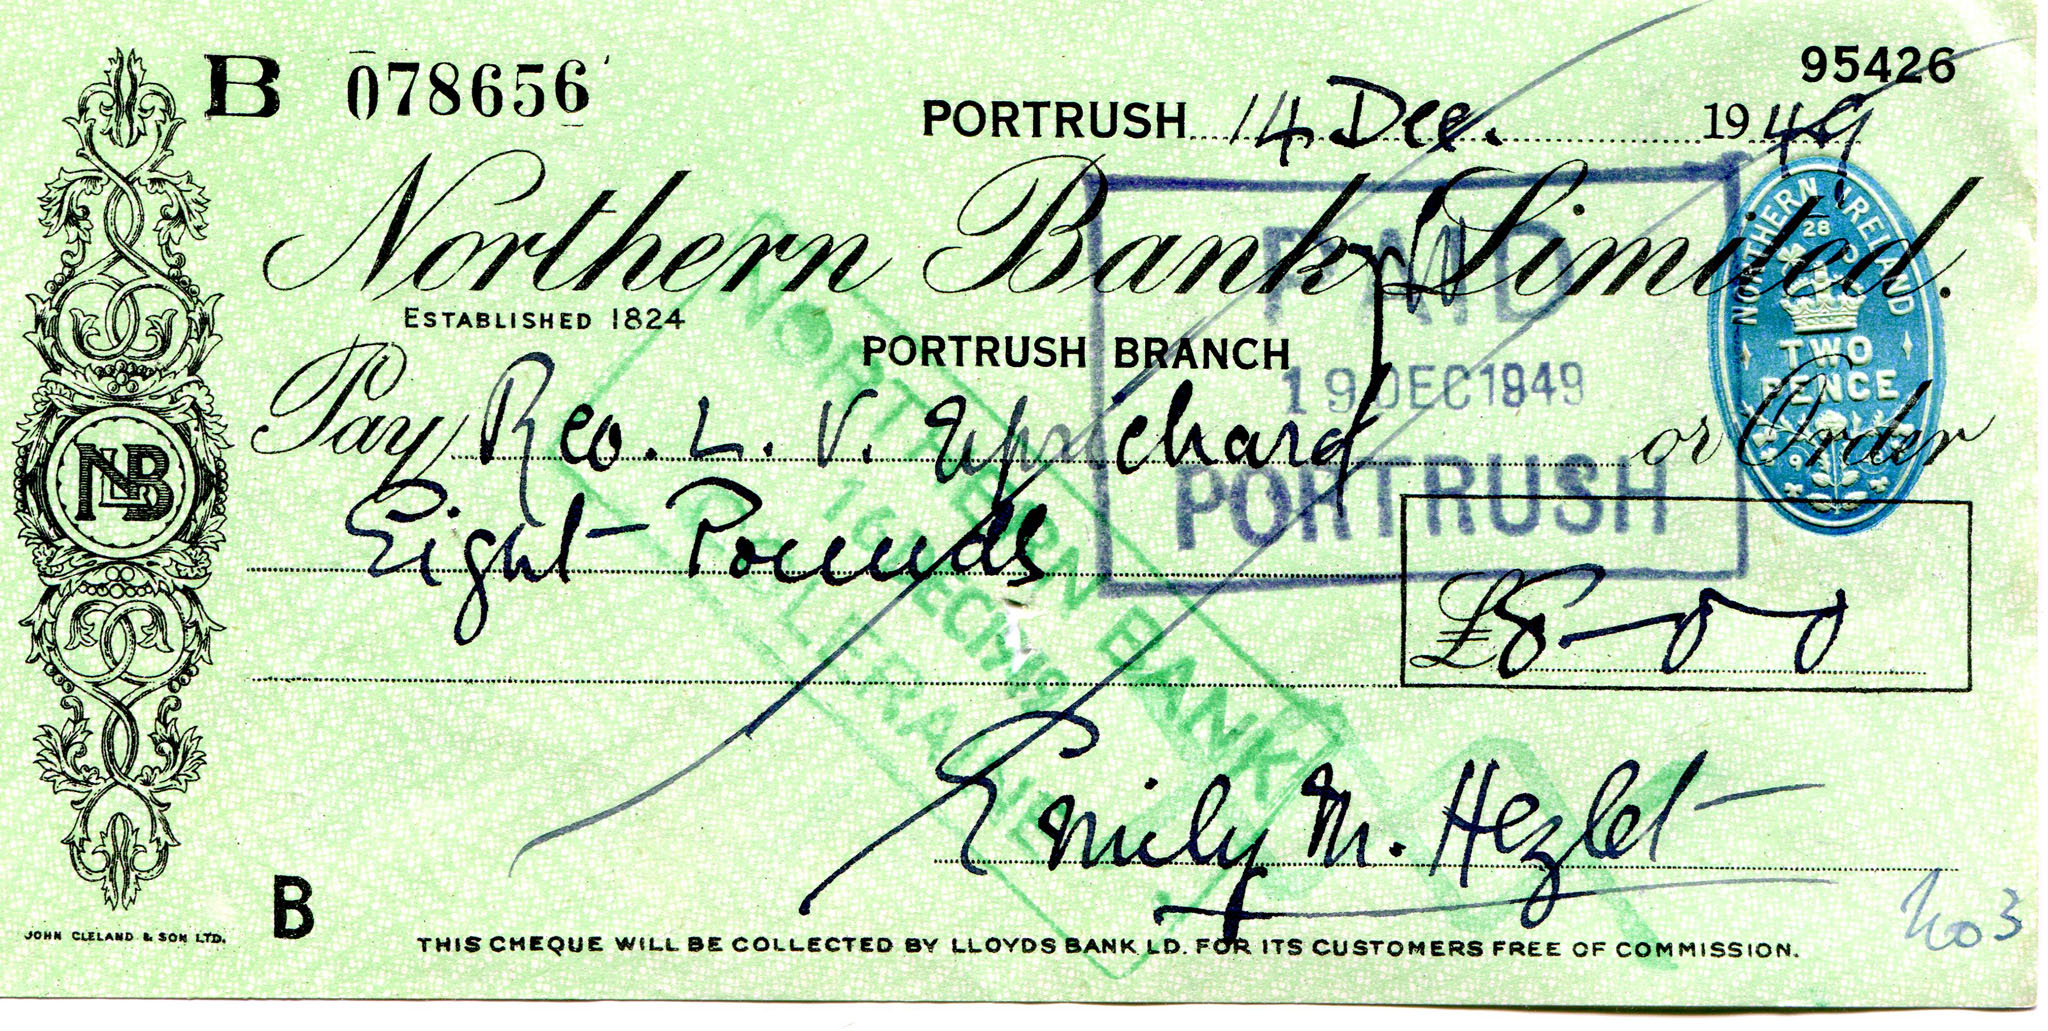 B 078656
95426
PORTRUSH 14 Dec. 1949
Northern Bank Limited.
ESTABLISHED 1824
PORTRUSH BRANCH
NORTHERN IRELAND
28
TWO
PENCE
PAID
19 DEC 1949
PORTRUSH
Pay Rev. L. V. Uprichard or Order
Eight Pounds
£8-0-0
NORTHERN BANK
16 DEC 1949
COLERAINE
NLB
Emily M. Hezlet
B
JOHN CLELAND & SON LTD.
THIS CHEQUE WILL BE COLLECTED BY LLOYDS BANK LD. FOR ITS CUSTOMERS FREE OF COMMISSION.